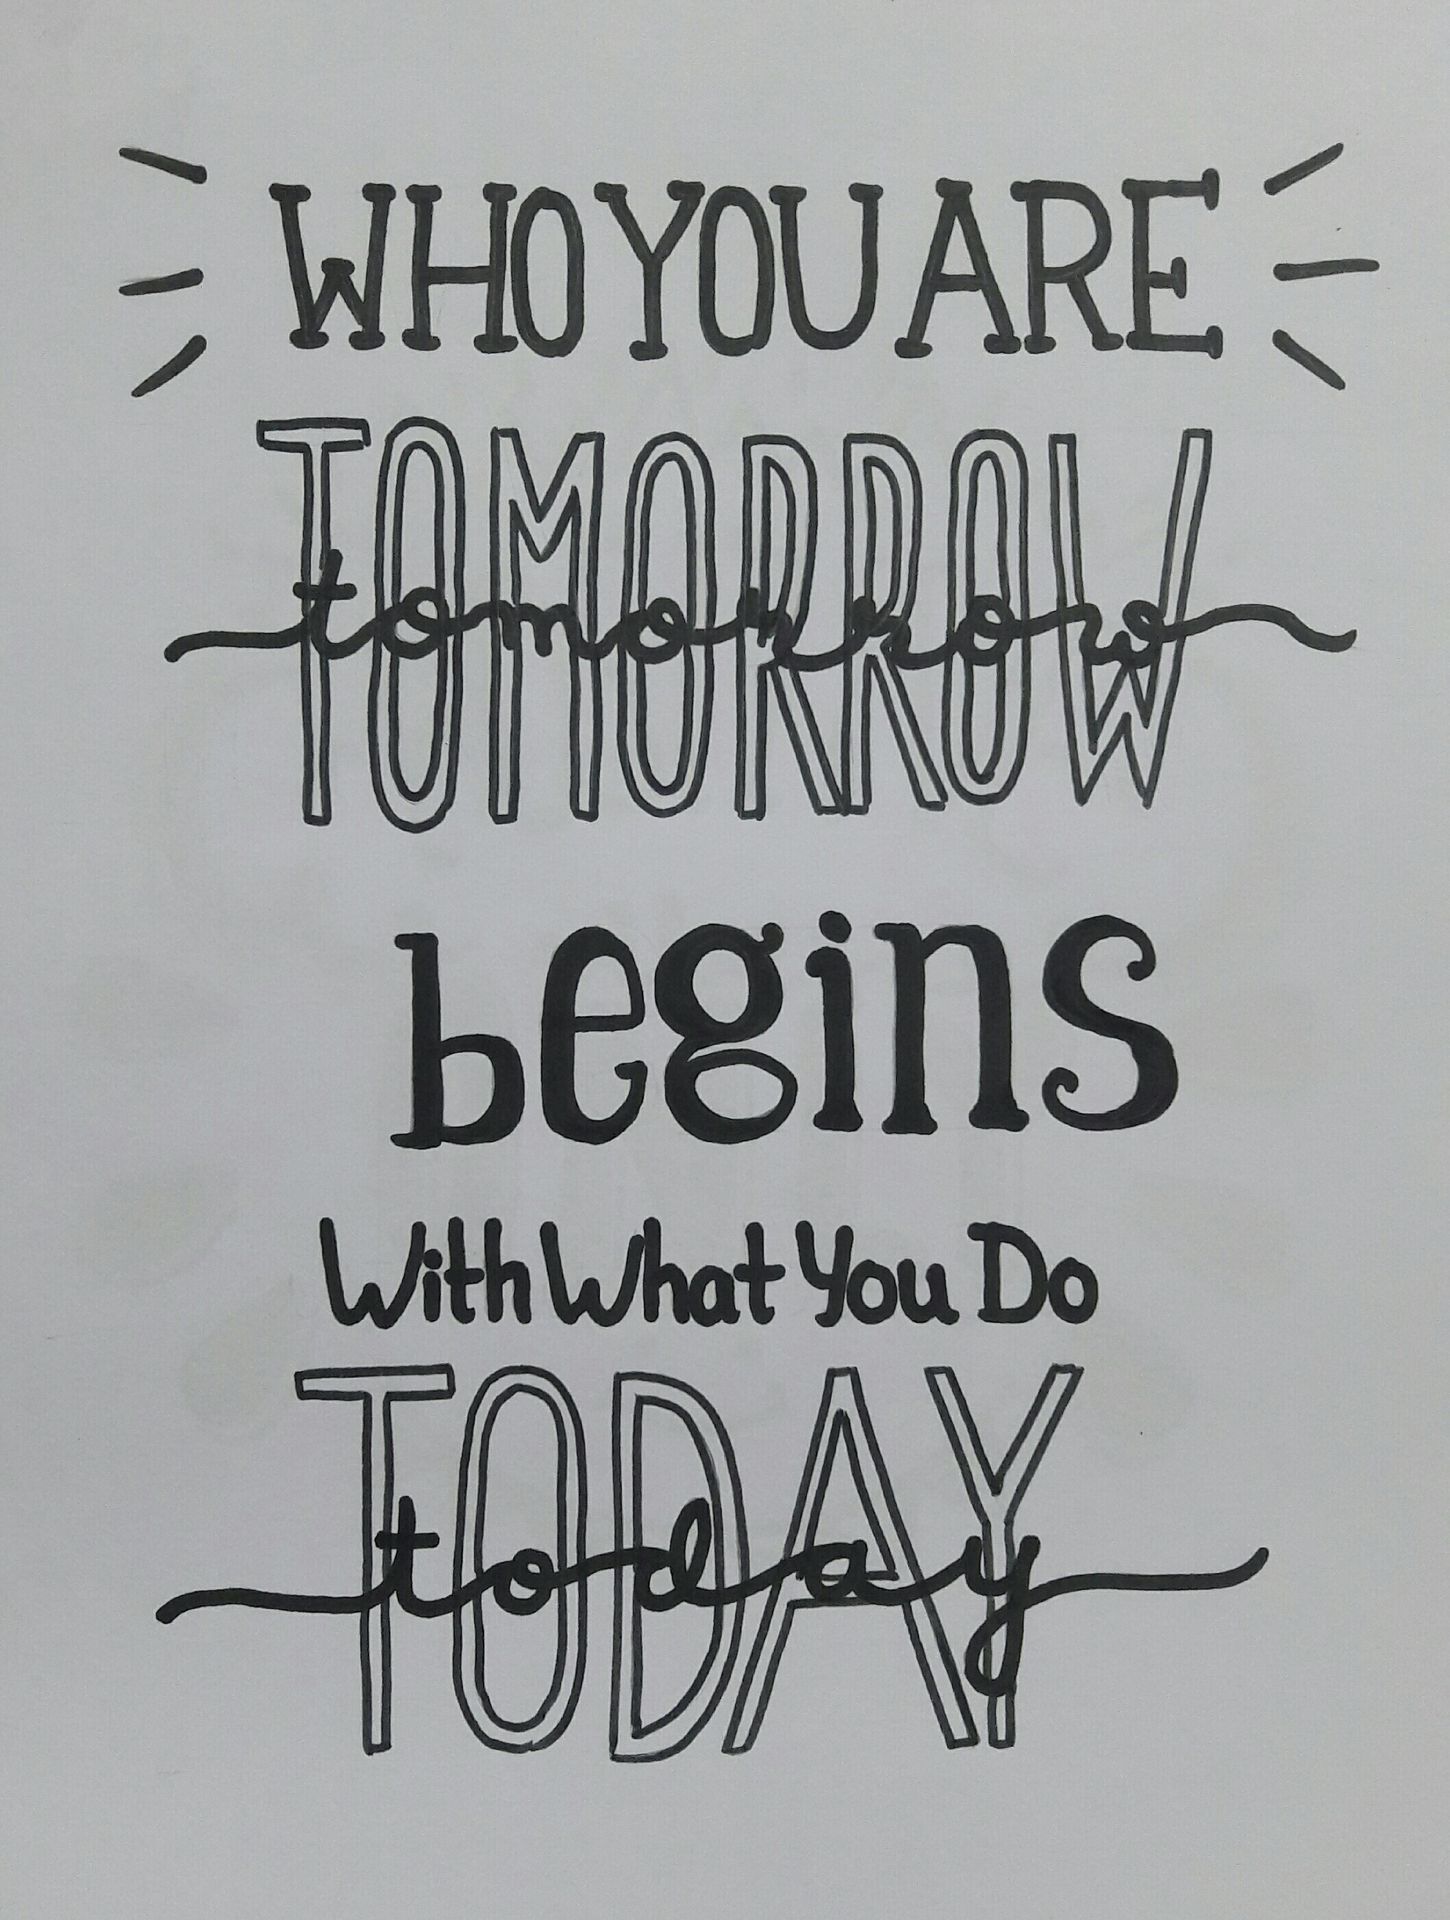 WHO YOU ARE
TOMORROW
tomorrow
begins
With What You Do
TODAY
today